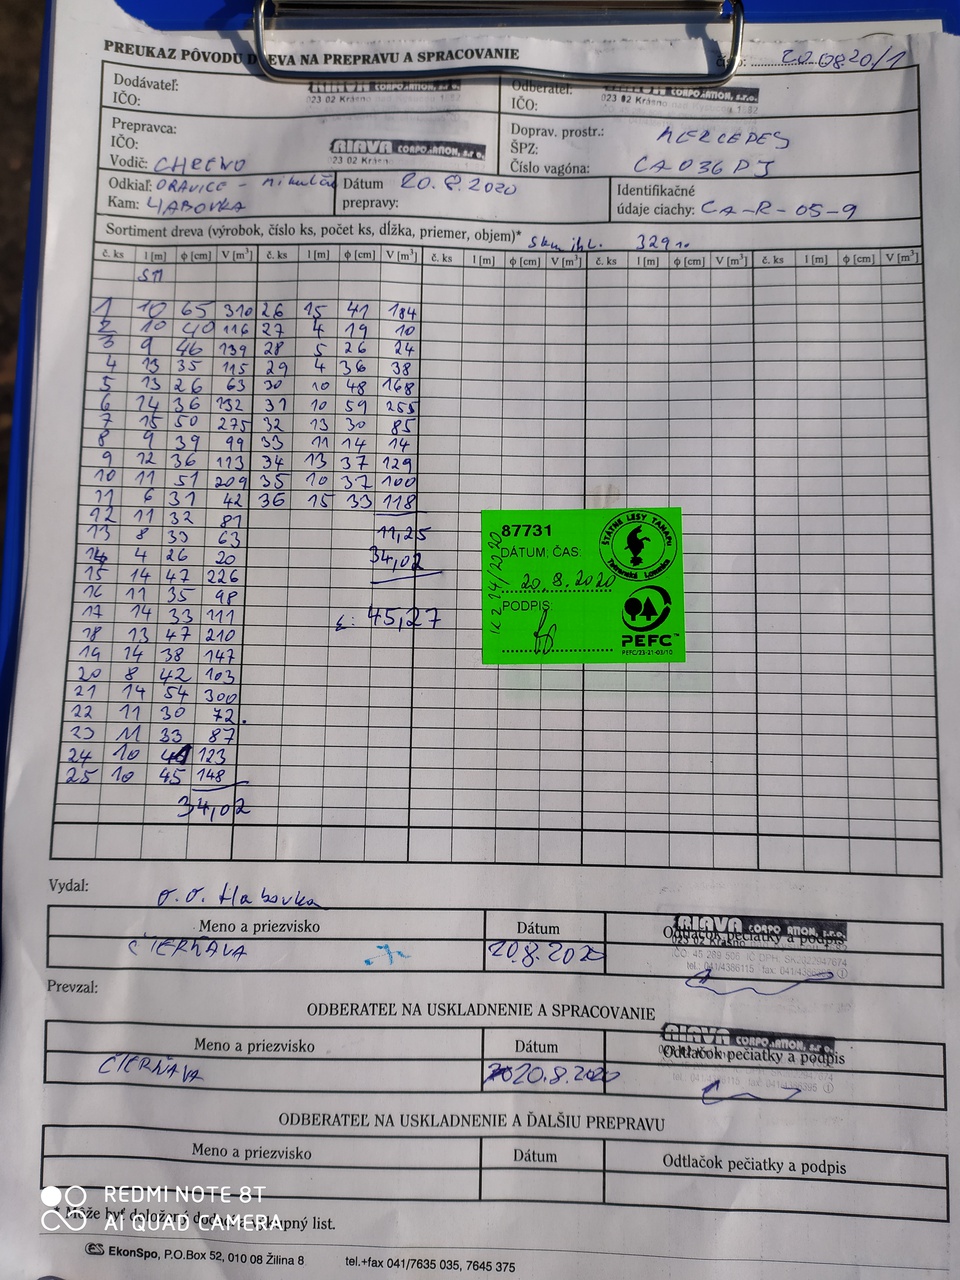 PREUKAZ PÔVODU DREVA NA PREPRAVU A SPRACOVANIE
číslo: 20.08.20/1
Dodávateľ: RIAVA CORPORATION, s.r.o.
IČO: 023 02 Krásno
Odberateľ: RIAVA CORPORATION, s.r.o.
IČO: 023 02 Krásno
Prepravca:
IČO: RIAVA CORPORATION, s.r.o.
023 02 Krásno
Vodič:
Doprav. prostr.: MERCEDES
ŠPZ:
Číslo vagóna: CA036PJ
Odkiaľ: ORAVICE -
Kam: HABOVKA
Dátum prepravy: 20.8.2020
Identifikačné
údaje ciachy: CA-R-05-9
Sortiment dreva (výrobok, číslo ks, počet ks, dĺžka, priemer, objem)*
č. ks l [m] ϕ [cm] V [m³] č. ks l [m] ϕ [cm] V [m³] č. ks l [m] ϕ [cm] V [m³] č. ks l [m] ϕ [cm] V [m³] č. ks l [m] ϕ [cm] V [m³]
SM
1 10 65 310 26 15 41 184
2 10 40 116 27 4 19 10
3 9 46 139 28 5 26 24
4 13 35 115 29 4 36 38
5 13 26 63 30 10 48 168
6 14 36 132 31 10 59 255
7 15 50 275 32 13 30 85
8 9 39 99 33 11 14 14
9 12 36 113 34 13 37 129
10 11 51 209 35 10 37 100
11 6 31 42 36 15 33 118
12 11 32 81
13 8 33 63 11,25
14 4 26 20 34,02
15 14 47 226
16 11 35 98
17 14 33 111 45,27
18 13 47 210
19 14 38 147
20 8 42 103
21 14 54 300
22 11 30 72
23 11 33 87
24 10 123
25 10 45 148
34,02
87731
DÁTUM, ČAS:
20.8.2020
PODPIS
ŠTÁTNE LESY TANAPU
Tatranská Lomnica
PEFC™
PEFC/23-21-03/10
Vydal: O.O. Habovka
Meno a priezvisko Dátum Odtlačok pečiatky a podpis
ČIERŇAVA 20.8.2020
RIAVA CORPORATION, s.r.o.
023 02 Krásno
Prevzal:
ODBERATEĽ NA USKLADNENIE A SPRACOVANIE
Meno a priezvisko Dátum Odtlačok pečiatky a podpis
ČIERŇAVA 20.8.2020
RIAVA CORPORATION, s.r.o.
ODBERATEĽ NA USKLADNENIE A ĎALŠIU PREPRAVU
Meno a priezvisko Dátum Odtlačok pečiatky a podpis
* Môže byť doložený
list.
REDMI NOTE 8T
AI QUAD CAMERA
EkonSpo, P.O.Box 52, 010 08 Žilina 8 tel.+fax 041/7635 035, 7645 375